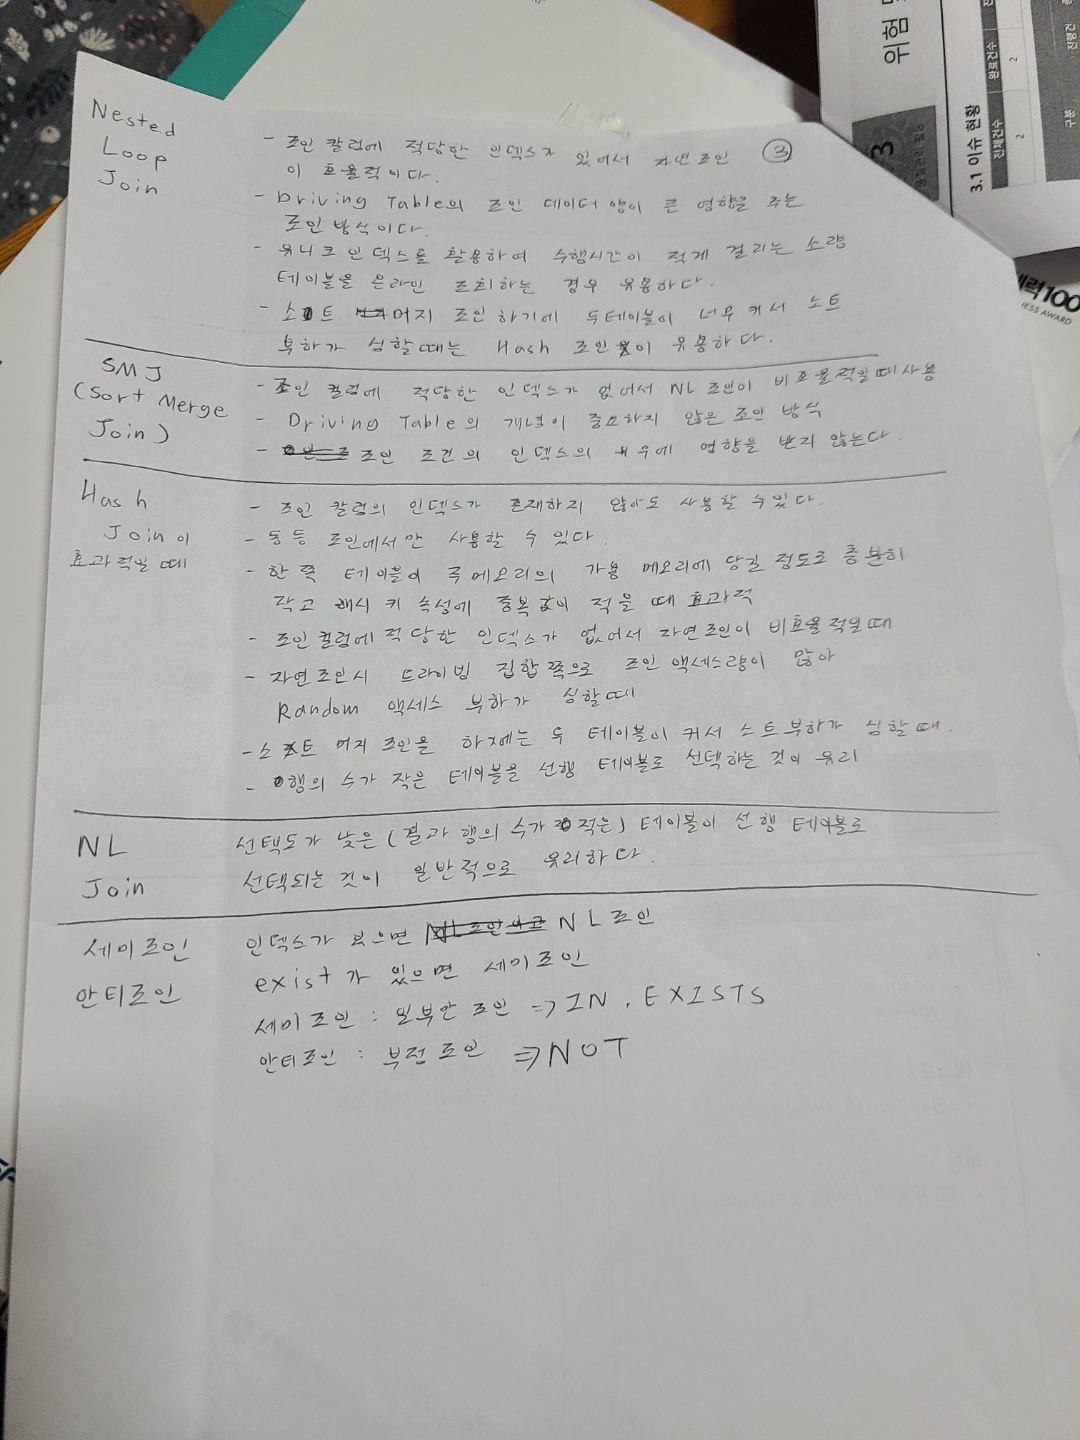 Nested
Loop
Join
- 조인 칼럼에 적당한 인덱스가 있어서 자연조인 ③
이 효율적이다.
- Driving Table의 조인 데이터 양이 큰 영향을 주는
조인 방식이다.
- 유니크 인덱스를 활용하여 수행시간이 적게 걸리는 소량
테이블을 온라인 조회하는 경우 유용하다.
- 소트 머지 조인하기에 두테이블이 너무 커서 소트
부하가 심할때는 Hash 조인이 유용하다.
SMJ
(Sort Merge
Join)
- 조인 컬럼에 적당한 인덱스가 없어서 NL 조인이 비효율적일때 사용
- Driving Table의 개념이 중요하지 않은 조인 방식
- 조인 조건의 인덱스의 유무에 영향을 받지 않는다.
Hash
Join이
효과적일 때
- 조인 칼럼의 인덱스가 존재하지 않아도 사용할 수 있다.
- 동등 조인에서만 사용할 수 있다.
- 한쪽 테이블이 주메모리의 가용 메모리에 담길 정도로 충분히
작고 해시 키 속성에 중복 값이 적을 때 효과적
- 조인 컬럼에 적당한 인덱스가 없어서 자연조인이 비효율적일때
- 자연조인시 드라이빙 집합쪽으로 조인 액세스량이 많아
Random 액세스 부하가 심할때
- 소트 머지 조인을 하기에는 두 테이블이 커서 소트부하가 심할 때.
- 행의 수가 작은 테이블을 선행 테이블로 선택하는 것이 유리
NL
Join
선택도가 낮은 (결과 행의 수가 적은) 테이블이 선행 테이블로
선택되는 것이 일반적으로 유리하다.
세미조인
안티조인
인덱스가 있으면 NL조인
exist가 있으면 세미조인
세미조인 : 일부만 조인 => IN, EXISTS
안티조인 : 부정 조인 => NOT
3.1 이슈 현황
전체건수
완료건수
2
2
구분
위험